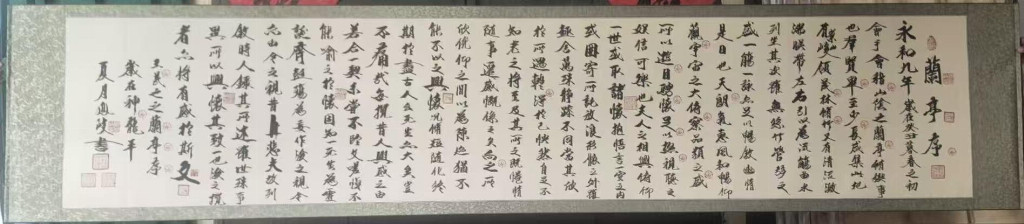 蘭亭序
永和九年歲在癸丑暮春之初
會于會稽山陰之蘭亭脩禊事
也群賢畢至少長咸集此地
有崇山峻領茂林脩竹又有清流激
湍暎帶左右引以為流觴曲水
列坐其次雖無絲竹管弦之
盛一觴一詠亦足以暢敘幽情
是日也天朗氣清惠風和暢仰
觀宇宙之大俯察品類之盛
所以遊目騁懷足以極視聽之
娛信可樂也夫人之相與俯仰
一世或取諸懷抱悟言一室之內
或因寄所託放浪形骸之外雖
趣舍萬殊靜躁不同當其欣
於所遇暫得於己快然自足不
知老之將至及其所之既惓情
隨事遷感慨係之矣向之所
欣俛仰之間以為陳迹猶不
能不以之興懷況脩短隨化終
期於盡古人云死生亦大矣豈
不痛哉每攬昔人興感之由
若合一契未嘗不臨文嗟悼不
能喻之於懷固知一死生為虛
誕齊彭殤為妄作後之視今
亦由今之視昔悲夫故列
敘時人錄其所述雖世殊事
異所以興懷其致一也後之攬
者亦將有感於斯文
王羲之之蘭亭序
歲在神龍年
夏月書